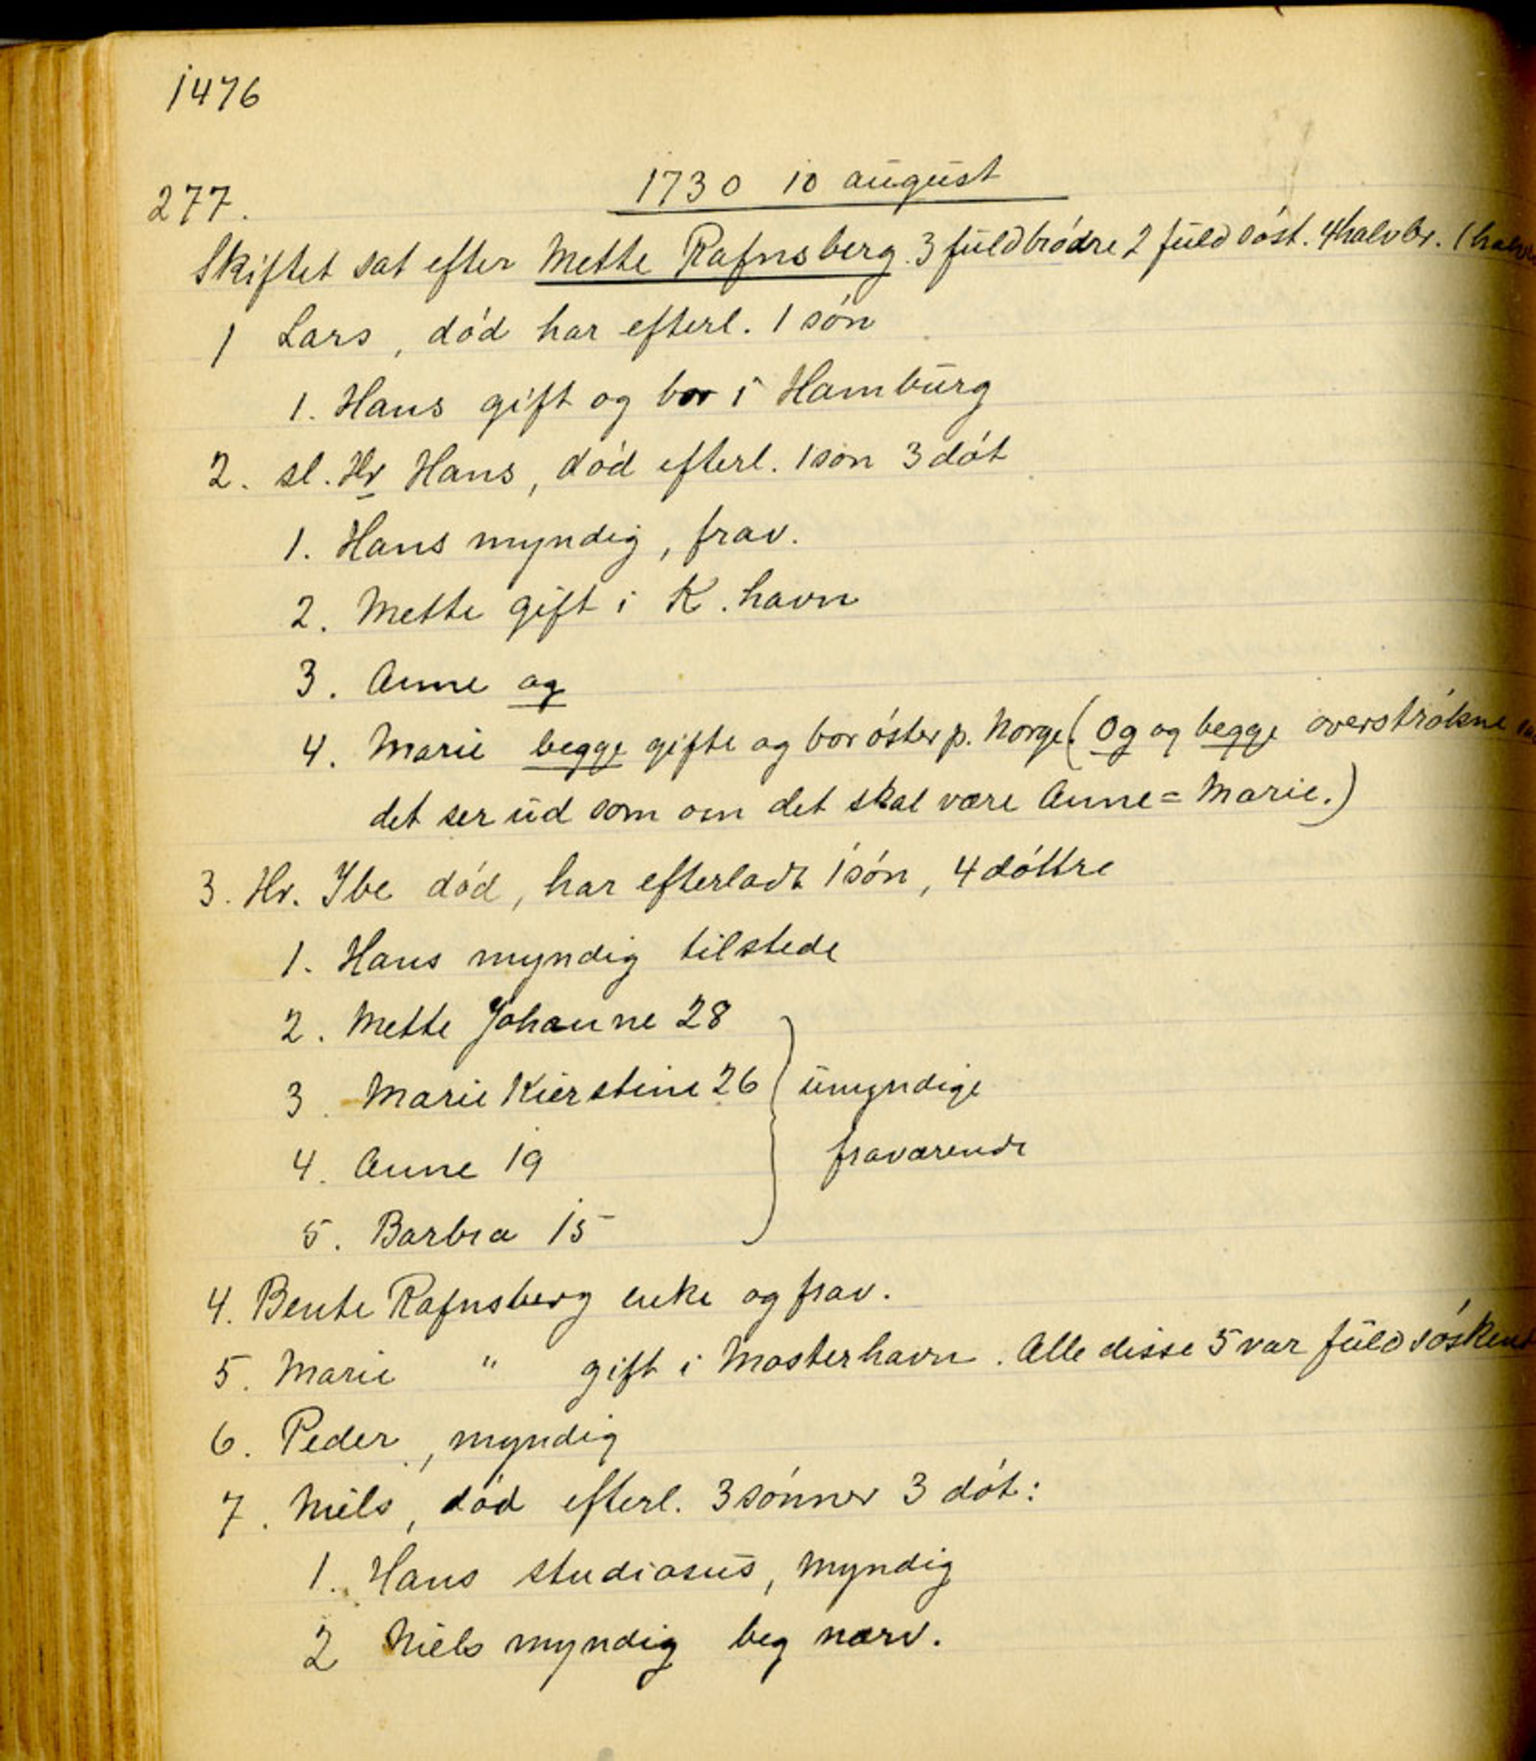 1476
277.
1730 10 august
Skiftet sat efter Mette Rafnsberg. 3 fuldbródre 2 fuld sóst. 4 halvbr. 1
1 Lars, dód har efterl. 1 són
1. Hans gift og bor i Hamburg
2. sl. Hr Hans, dód efterl. 1 són 3 dót
1. Hans myndig, frav.
2. Mette gift i K.havn
3. Anne og
4. Marie begge gifte og bor óster p. Norge. (Og og begge overstrókne
det ser ud som om det skal være Anne=Marie.)
3. Hr. Ibe dód, har efterladt 1 són, 4 dóttre
1. Hans myndig tilstede
2. Mette Johanne 28
3. Marie Kierstine 26 } umyndige
4. Anne 19 fraværende
5. Barbra 15
4. Bente Rafnsberg enke og frav.
5. Marie " gift i Mosterhavn. Alle disse 5 var fuld sóskend
6. Peder, myndig
7. Niels, dód efterl. 3 sónner 3 dót:
1. Hans studiosus, myndig
2 Niels myndig beg nærv.